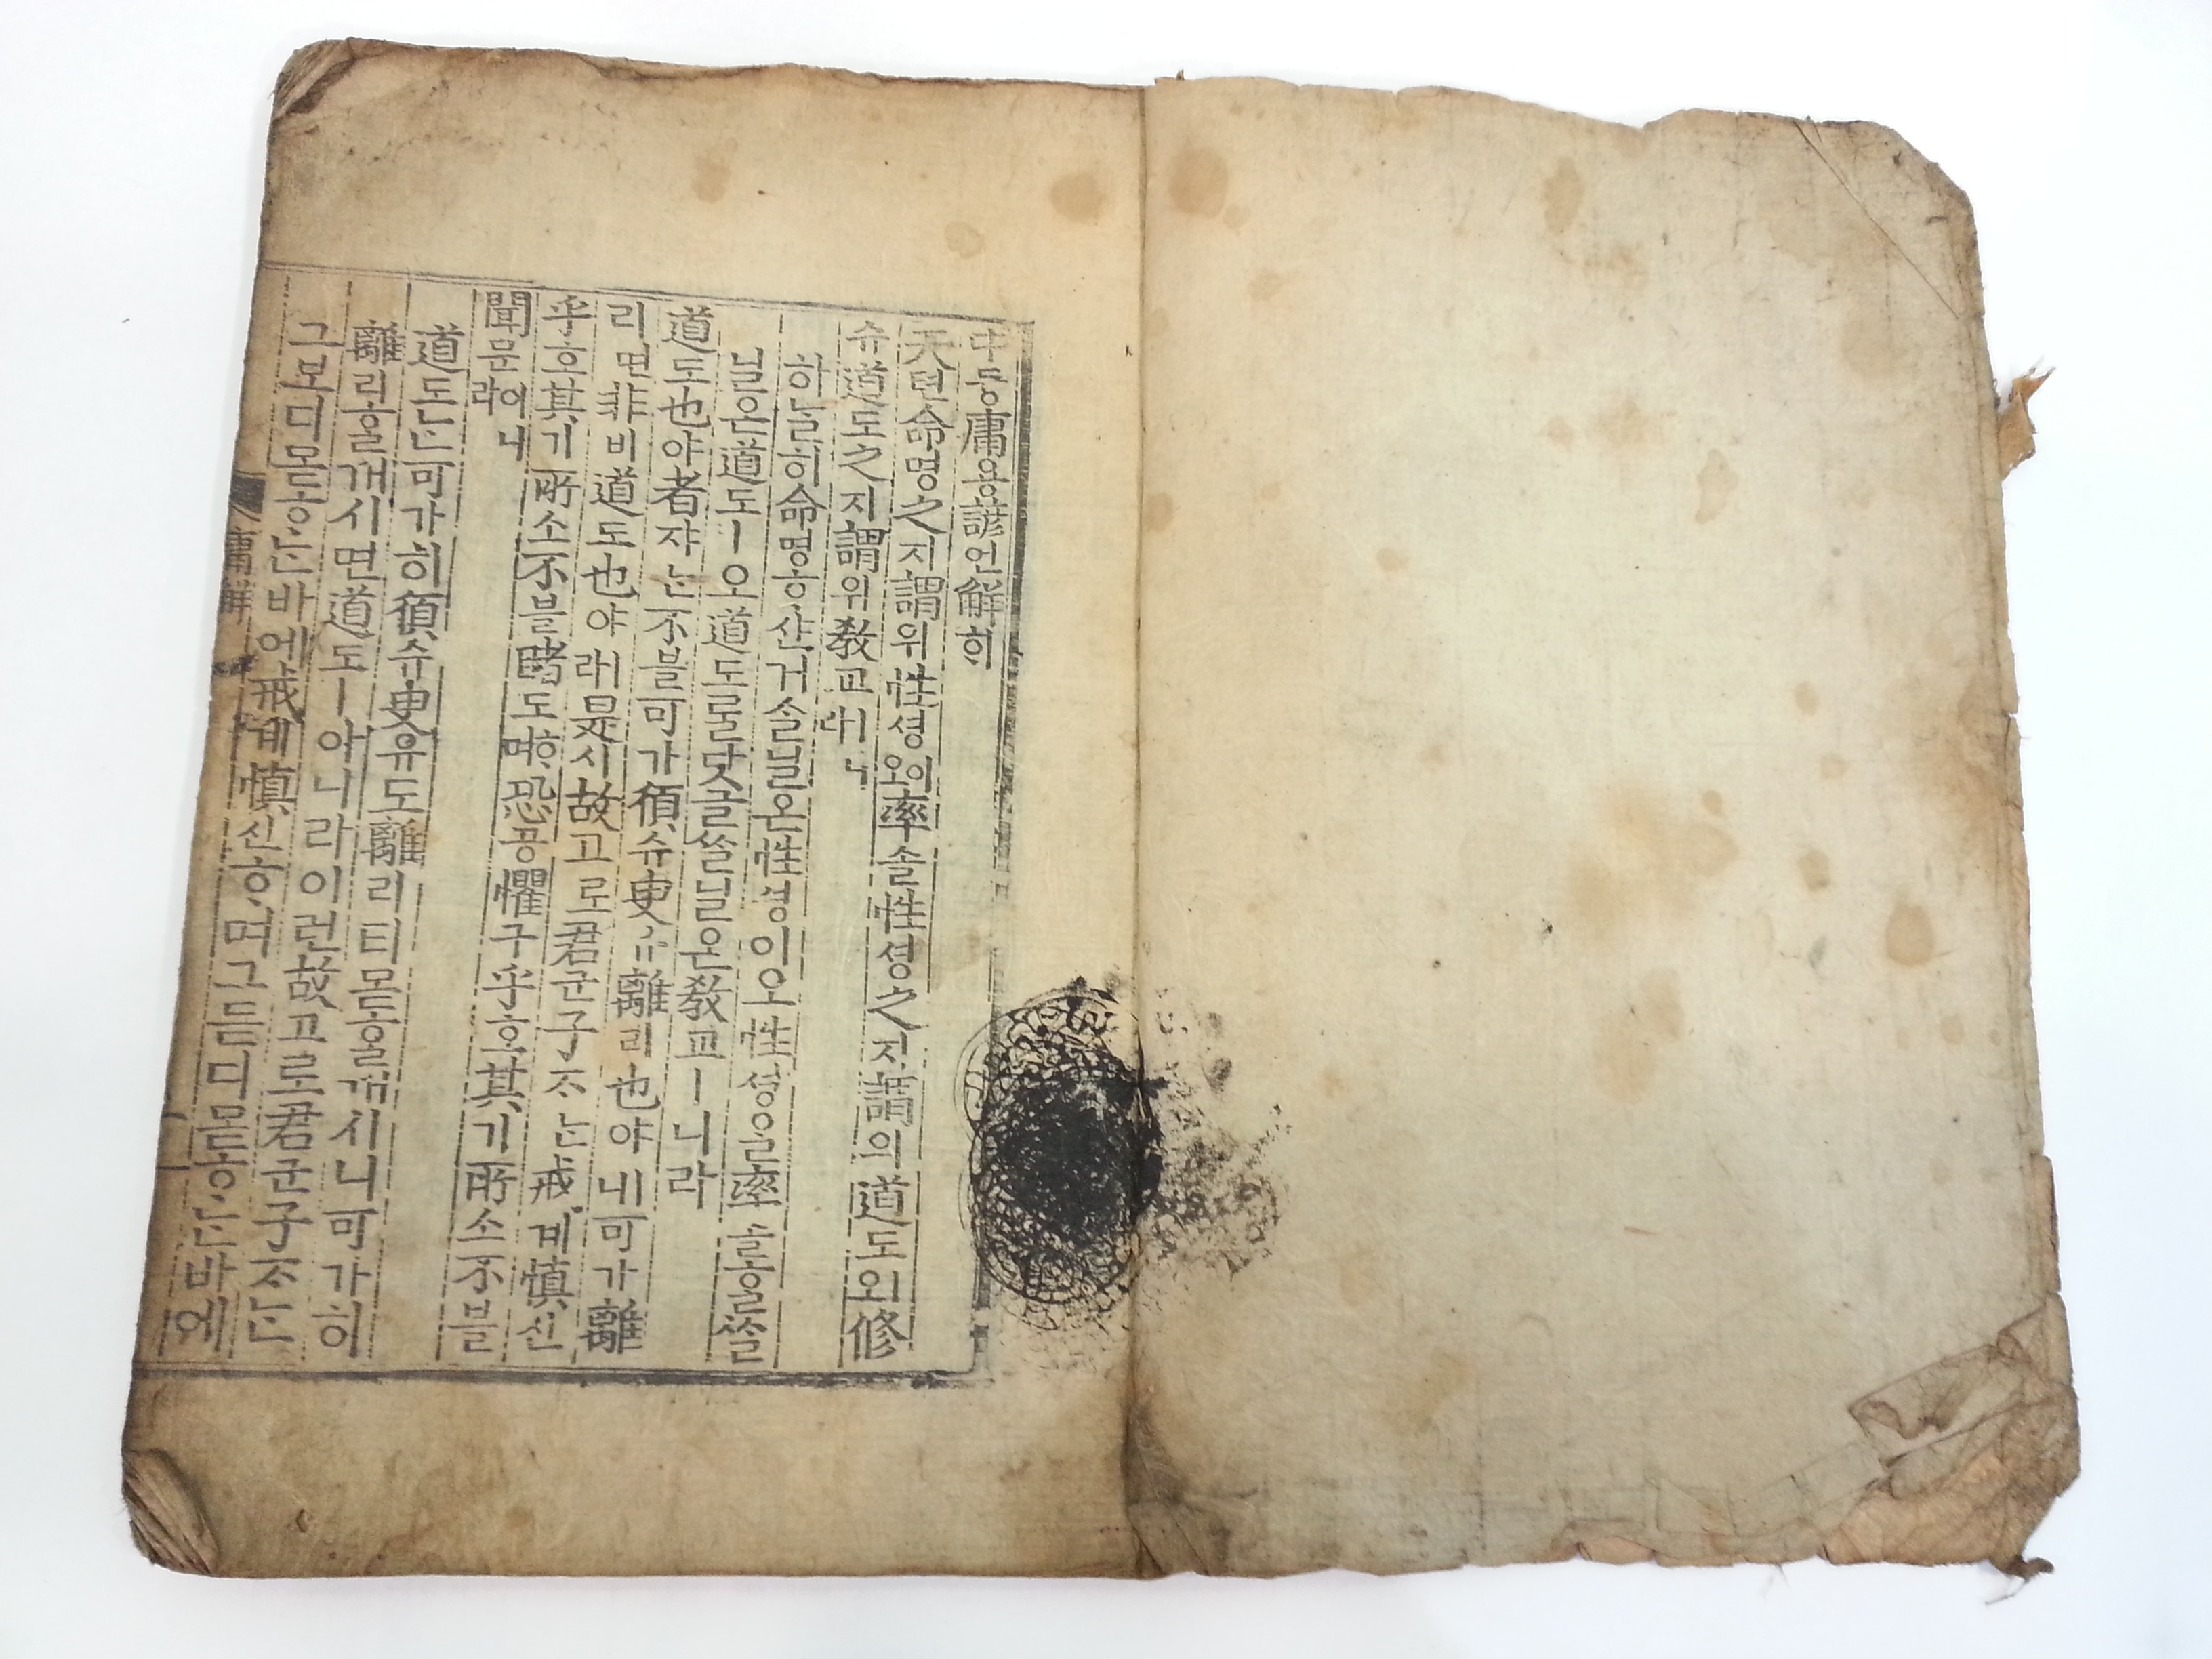 中듕庸용諺언解ᄒᆡ
天텬命명之지謂위性셩이오率솔性셩之지謂위道도ㅣ오修
슈道도之지謂위敎교ㅣ니라
하ᄂᆞᆯ히命명ᄒᆞ샨거슬닐온性셩이오性셩을率솔ᄒᆞᆯᄊᆞᆯ
닐온道도ㅣ오道도ᄅᆞᆯ닷글ᄊᆞᆯ닐온敎교ㅣ니라
道도也야者쟈ᄂᆞᆫ不블可가須슈臾유離리也야ㅣ니可가離
리면非비道도也야ㅣ라是시故고로君군子ᄌᆞᄂᆞᆫ戒계愼신
乎호其기所소不블睹도ᄒᆞ며恐공懼구乎호其기所소不블
聞문이니라
道도ᄂᆞᆫ可가히須슈臾유도離리티몯ᄒᆞᆯ꺼시니可가히
離리ᄒᆞᆯ꺼시면道도ㅣ아니라이런故고로君군子ᄌᆞᄂᆞᆫ
그보디몯ᄒᆞᄂᆞᆫ바에戒계愼신ᄒᆞ며그듣디몯ᄒᆞᄂᆞᆫ바에
庸解